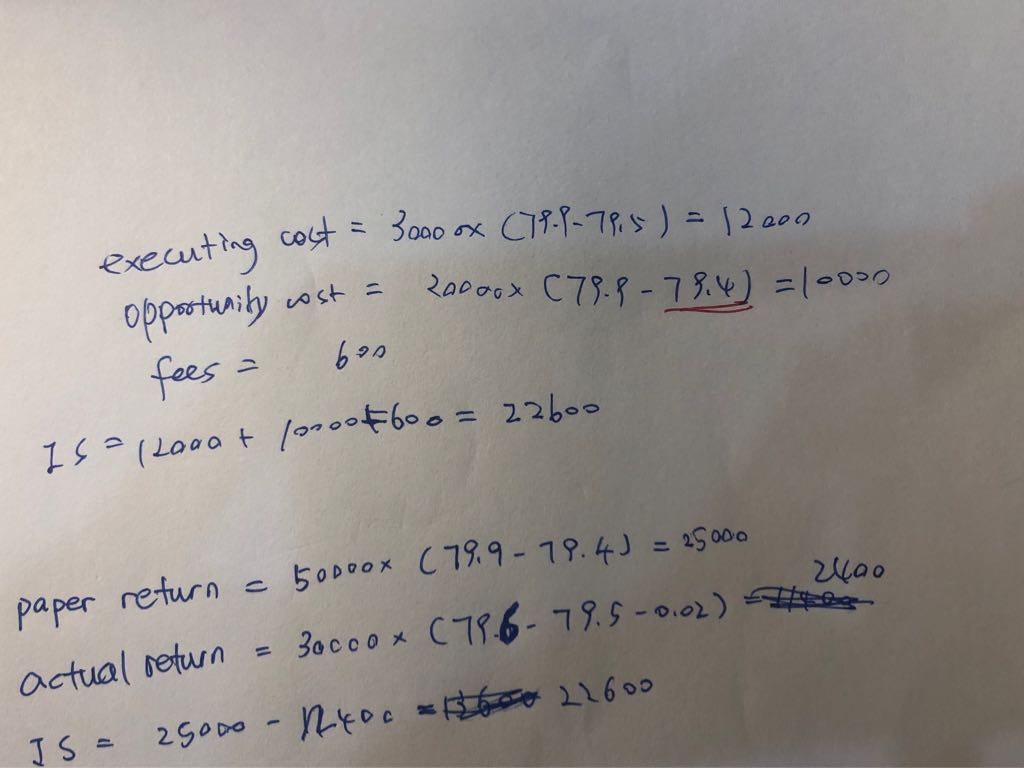 executing cost = 30000x (79.9-79.5) = 12000
opportunity cost = 20000x (79.9-79.4) = 10000
fees = 600
IS = 12000 + 10000+600 = 22600
paper return = 50000x (79.9-79.4) = 25000
2400
actual return = 30000x (79.6-79.5-0.02) =
IS = 25000 - 2400 = 22600